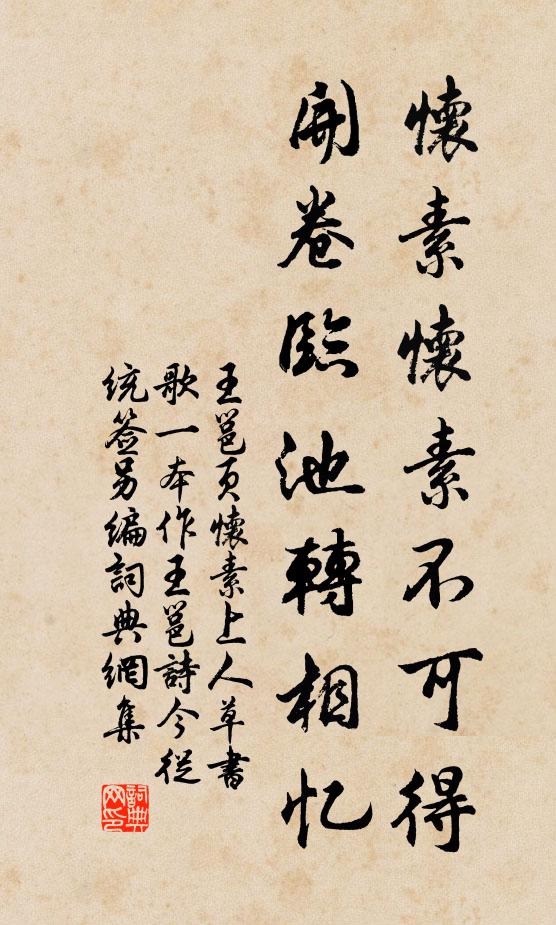 懷素懷素不可得
開卷臨池轉相忆
王邕頁懷素上人草書
歌一本作王邕詩今從
统签另编詞典網集
詞典网印